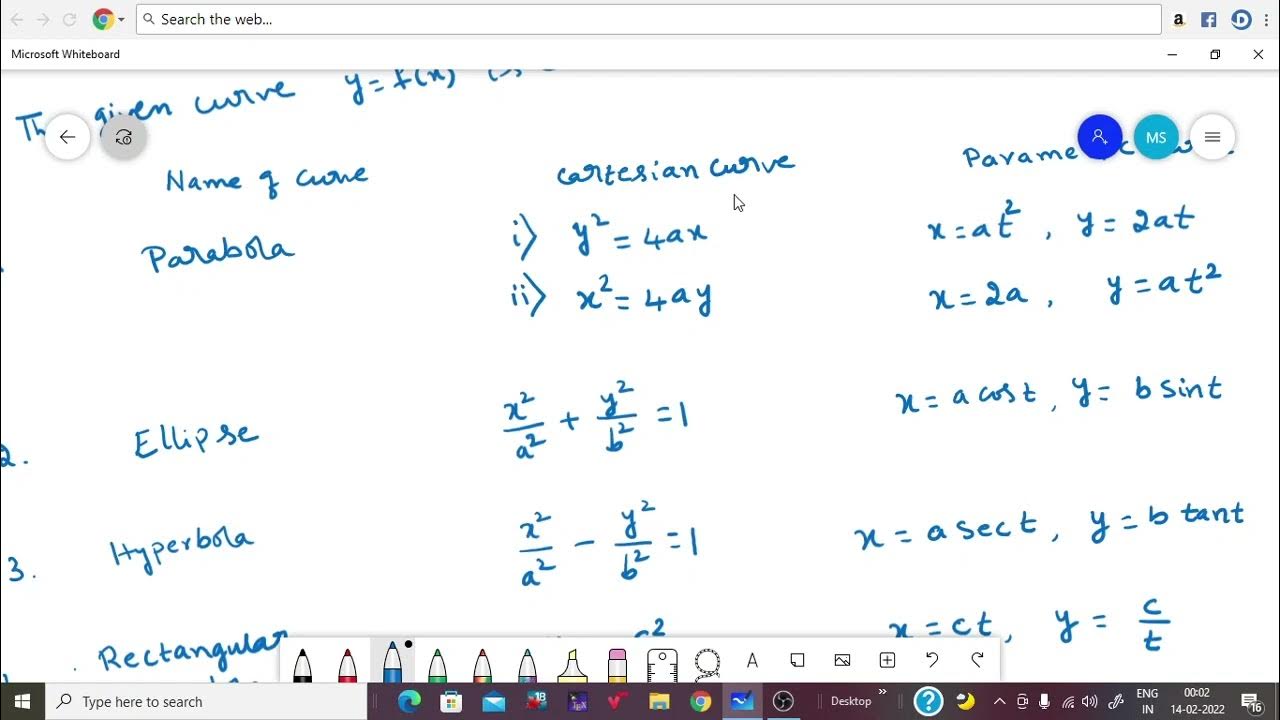 Search the web...
Microsoft Whiteboard
given curve y = f(x) is
Name of curve Cartesian curve
MS
Parabola i) y² = 4ax x = at², y = 2at
ii) x² = 4ay x = 2a, y = at²
2. Ellipse x²/a² + y²/b² = 1 x = a cost, y = b sint
3. Hyperbola x²/a² - y²/b² = 1 x = a sect, y = b tant
Rectangular c² x = ct, y = c/t
A
Type here to search Desktop ENG 00:02
IN 14-02-2022 16